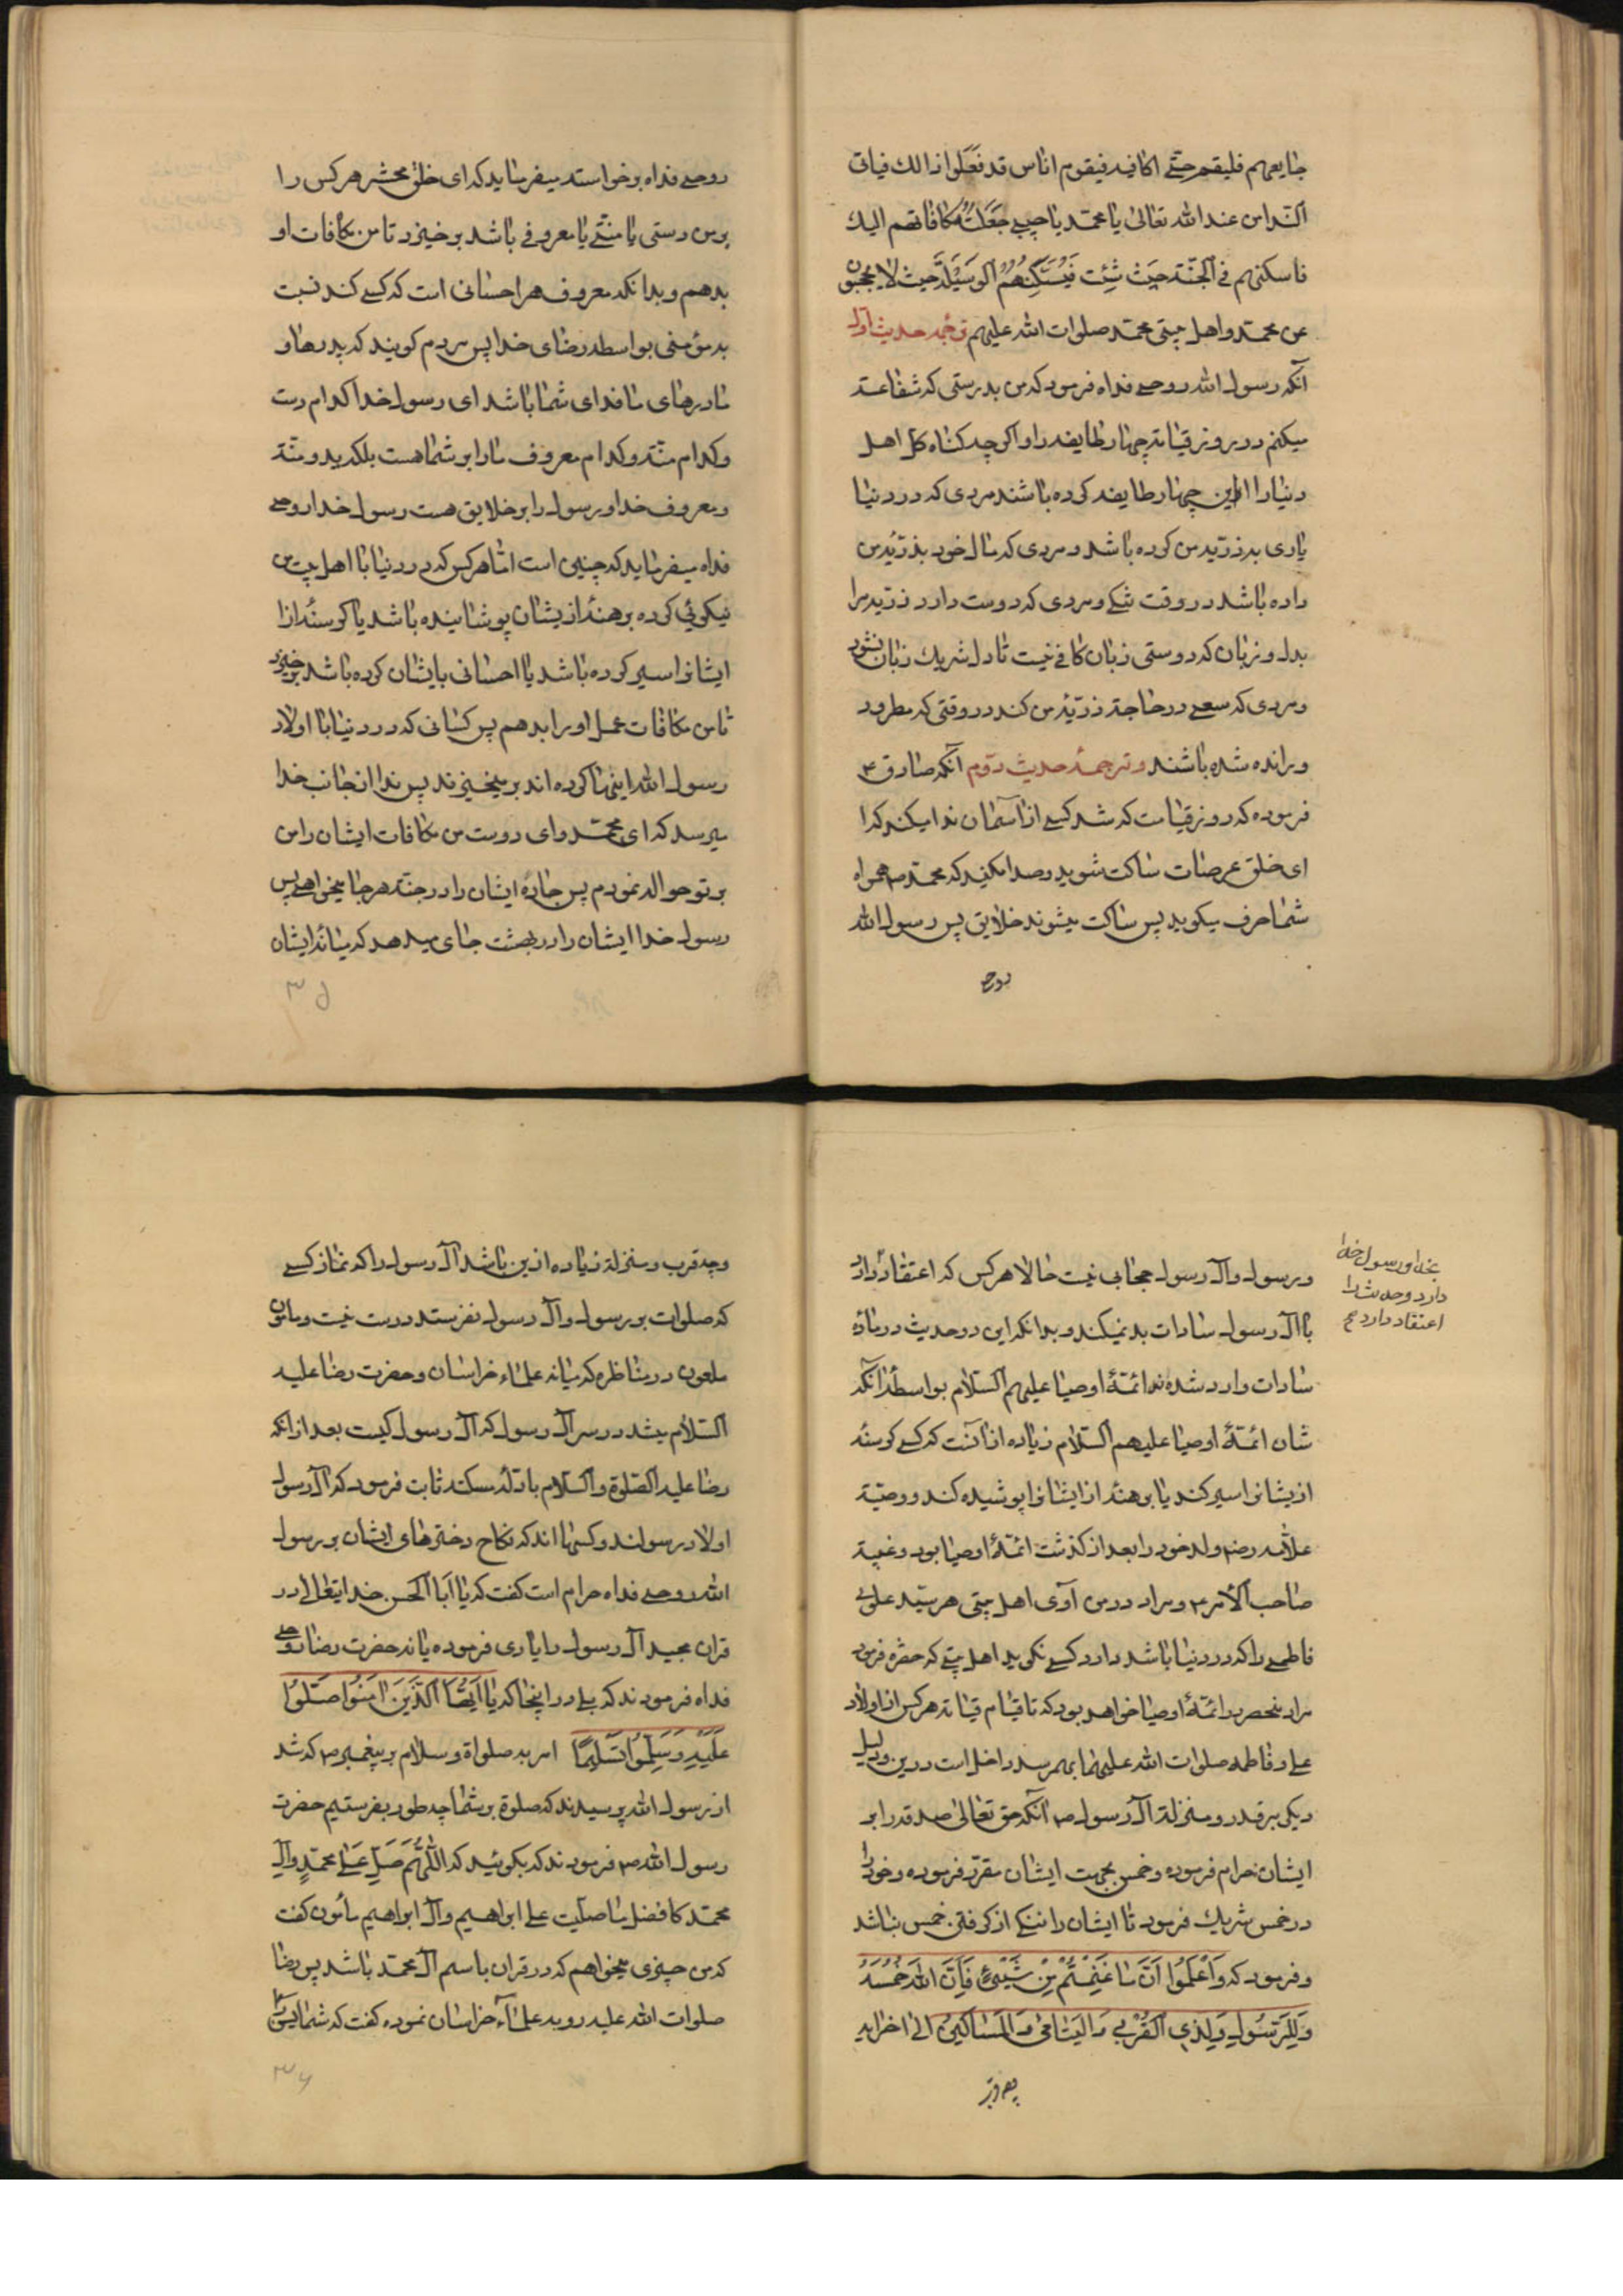 جایعهم فلیقم حتی اکافیه فیقوم اناس قد فعلوا ذالك فیاتی
النداء من عند الله تعالی یا محمد یا حبیبی جعلت مکافاتهم الیك
فاسکنهم فی الجنة حیث شئت فیسکنهم الوسیلة حیث لا یحجبون
عن محمد و اهل بیتی محمد صلوات الله علیهم ترجمه حدیث اول
آنکه رسول الله روحی فداه فرمود که من بدرستی که شفاعة
میکنم در روز قیامة چهار طایفه را و اکرچه کناه کل اهل
دنیا را این چهار طایفه کرده باشند مردی که در دنیا
یاری بذریه من کرده باشد و مردی که مال خود بذریه من
داده باشد در وقت تنکی و مردی که دوست دارد ذریه مرا
بدل و زبان که دوستی زبان کافی نیست تا دل شریك زبان نشود
و مردی که سعی در حاجة ذریه من کند در وقتی که مطرود
و رانده شده باشند و ترجمهٔ حدیث دوم آنکه صادق ع
فرموده که روز قیامت که شد کسی از آسمان ندا میکند که ا
ای خلق عرصات ساکت شوید و صدا مکنید که محمد ص همراه
شما حرف میکوید پس ساکت میشوند خلایق پس رسول الله
روحی
روحی فداه برخواسته میفرماید که ای خلق محشر هر کس را
بر من دستی یا منتی یا معروفی باشد برخیزد تا من مکافات او
بدهم و بدانکه معروف هر احسانی است که کسی کند نسبت
بمؤمنی بواسطه رضای خدا پس مردم کویند که پدرها و
مادرهای ما فدای شما باشد ای رسول خدا کدام دست
و کدام منة و کدام معروف ما را بر شما هست بلکه ید و منة
و معروف خدا و رسول را بر خلایق هست رسول خدا روحی
فداه میفرماید که چنین است اما هر کس که در دنیا با اهل بیت من
نیکوئی کرده برهنهٔ از یشان پوشانیده باشد یا کرسنهٔ از ا
ایشانرا سیر کرده باشد یا احسانی بایشان کرده باشد برخیزد
تا من مکافات عمل او را بدهم پس کسانی که در دنیا با اولاد
رسول الله اینها کرده اند برمیخیزند پس ندا از جانب خدا
میرسد که ای محمد و ای دوست من مکافات ایشان را من
بر تو حواله نمودم پس جا ده ایشان را در جنة هر جا میخواهی پس
رسول خدا ایشان را در بهشت جای میدهد که میانهٔ ایشان
۳۵
و رسول و آل رسول حجابی نیست حالا هر کس که اعتقاد دارد
بخدا و رسول خدا
دارد و حدیث را
اعتقاد دارد
با آل رسول سادات بد نمیکند و بدانکه این دو حدیث در مادهٔ
سادات وارد شده نه ائمهٔ اوصیا علیهم السلام بواسطهٔ آنکه
شان ائمهٔ اوصیا علیهم السلام زیاده از آنست که کسی کرسنهٔ
از یشانرا سیر کند یا برهنهٔ از ایشانرا پوشیده کند و وصیة
علامه رض ولد خود را بعد از کذشت ائمهٔ اوصیا بود و غیبة
صاحب الامر ع و مراد در من آوی اهل بیتی هر سید علوی
فاطمی را که در دنیا باشد دارد کسی نکوید اهل بیتی که حضرة فرموده
مراد منحصر بر ائمهٔ اوصیا خواهد بود که تا قیام قیامة هر کس از اولاد
علی و فاطمه صلوات الله علیهما بهمرسد داخل است در ین و دلیل
دیکر بر قدر و منزلة آل رسول ص آنکه حق تعالی صدقه را بر
ایشان حرام فرموده و خمس بجهت ایشان مقرر فرموده و خود را
در خمس شریك فرمود تا ایشان را ننکی از کرفتن خمس نباشد
و فرمود که وَاعْلَمُوا اَنَّ مَا غَنِمْتُمْ مِنْ شَیْئٍ فَاَنَّ اللهَ خُمُسَهُ
وَ لِلرَّسُولِ وَ لِذِی القُرْبی وَ الیَتَامی وَ المَسَاکینَ الی اخرایه
و چه قرب و منزلة زیاده ازین باشد آل رسول را که نماز کسی
که صلوات بر رسول و آل رسول نفرستد درست نیست و مامون
ملعون در مناظره که میانه علماء خراسان و حضرت رضا علیه
السلام میشد در سر آل رسول که آل رسول کیست بعد از انکه
رضا علیه الصلوة و السلام بادلهٔ مسکته ثابت فرمود که آل رسول
اولاد رسولند و کسها اند که نکاح دخترهای ایشان بر رسول
الله روحی فداه حرام است کفت که یا ابا الحسن خدایتعالی در
قران مجید آل رسول را یاری فرموده یا نه حضرت رضا روحی
فداه فرمودند که بلی در اینجا که یا اَیُّهَا الَّذَینَ امَنُوا صَلُّوا
عَلَیْهِ وَ سَلِّمُوا تَسْلیمًا امر بصلواة و سلام بر پیغمبر ص که شد
از رسول الله پرسیدند که صلوة بر شما چه طور بفرستیم حضرت
رسول الله ص فرمودند که بکوئید که اللّهُمَّ صَلِّ عَلی محمّدٍ و آل
محمد کافضل ما صلیت علی ابراهیم و آل ابراهیم مأمون کفت
که من چیزی میخواهم که در قران باسم آل محمد باشد پس رضا
صلوات الله علیه رو بعلماء خراسان نموده کفت که شما
۳۶